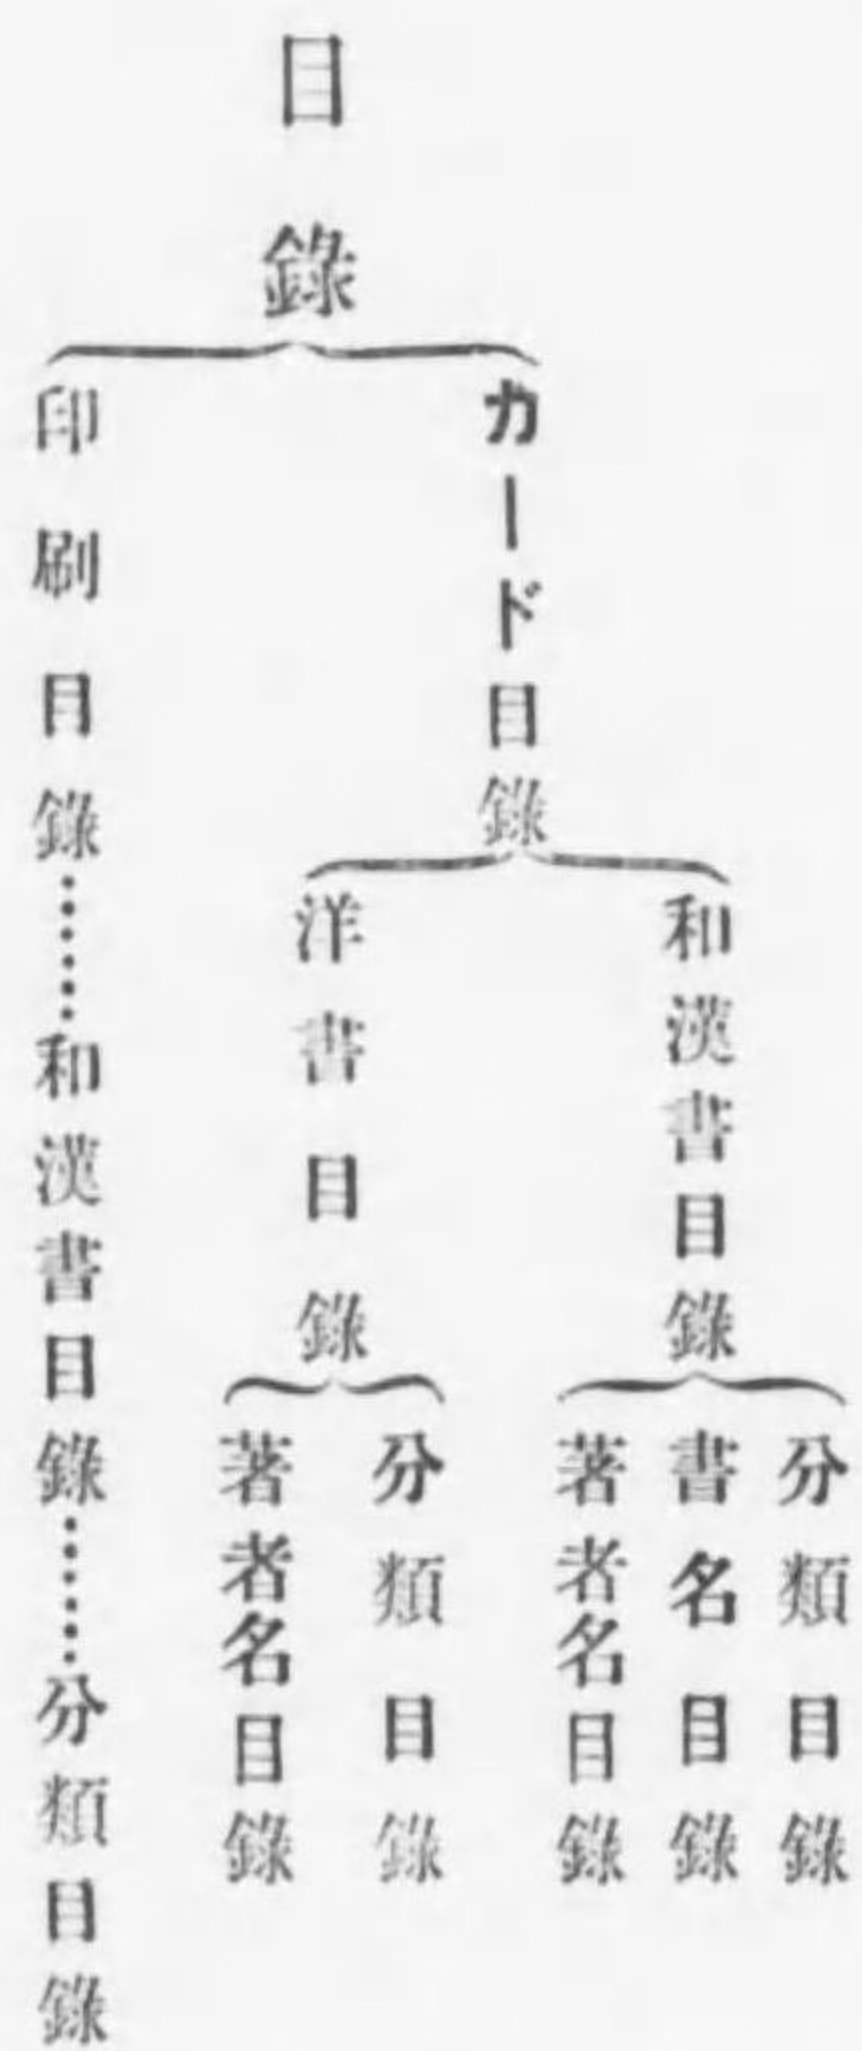 目錄
カード目錄
和漢書目錄
分類目錄
書名目錄
著者名目錄
洋書目錄
分類目錄
著者名目錄
印刷目錄……和漢書目錄……分類目錄